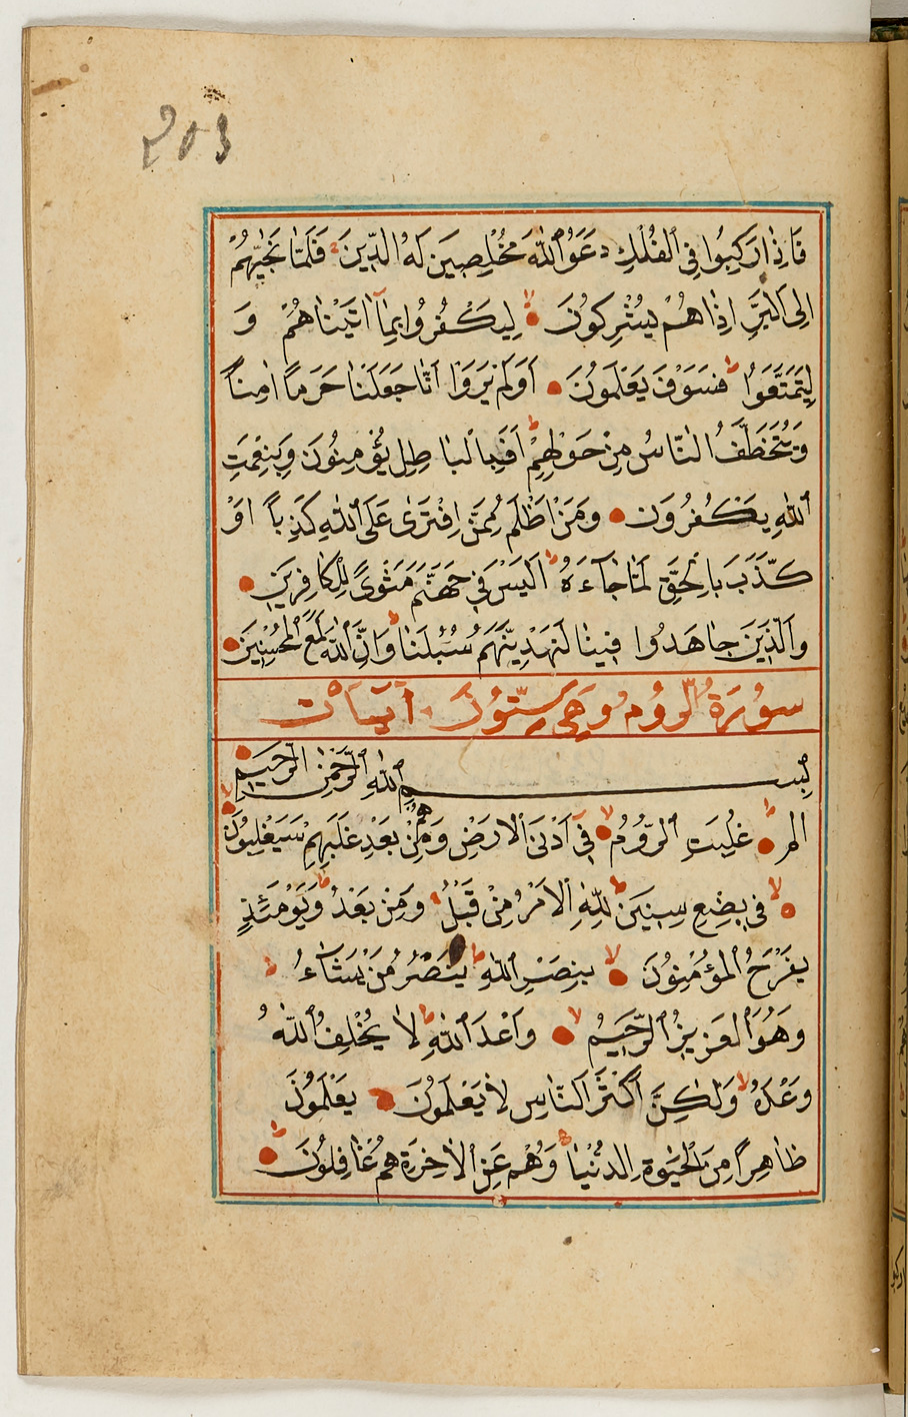 203
فَاِذَا رَكِبُوا فِى الْفُلْكِ دَعَوُا اللّٰهَ مُخْلِصِينَ لَهُ الدِّينَ فَلَمَّا نَجّٰيهُمْ
اِلَى الْبَرِّ اِذَا هُمْ يُشْرِكُونَ لِيَكْفُرُوا بِمَا اٰتَيْنَاهُمْ وَ
لِيَتَمَتَّعُوا فَسَوْفَ يَعْلَمُونَ اَوَلَمْ يَرَوْا اَنَّا جَعَلْنَا حَرَمًا اٰمِنًا
وَيُتَخَطَّفُ النَّاسُ مِنْ حَوْلِهِمْ اَفَبِالْبَاطِلِ يُؤْمِنُونَ وَبِنِعْمَتِ
اللّٰهِ يَكْفُرُونَ وَمَنْ اَظْلَمُ مِمَّنِ افْتَرٰى عَلَى اللّٰهِ كَذِبًا اَوْ
كَذَّبَ بِالْحَقِّ لَمَّا جَاءَهُ اَلَيْسَ فِى جَهَنَّمَ مَثْوًى لِلْكَافِرِينَ
وَالَّذِينَ جَاهَدُوا فِينَا لَنَهْدِيَنَّهُمْ سُبُلَنَا وَاِنَّ اللّٰهَ لَمَعَ الْمُحْسِنِينَ
سُورَةُ الرُّومُ وَهِىَ سِتُّونَ اٰيَات
بِسْمِ اللّٰهِ الرَّحْمٰنِ الرَّحِيمِ
الم غُلِبَتِ الرُّومُ فِى اَدْنَى الْاَرْضِ وَهُمْ مِنْ بَعْدِ غَلَبِهِمْ سَيَغْلِبُونَ
فِى بِضْعِ سِنِينَ لِلّٰهِ الْاَمْرُ مِنْ قَبْلُ وَمِنْ بَعْدُ وَيَوْمَئِذٍ
يَفْرَحُ الْمُؤْمِنُونَ بِنَصْرِ اللّٰهِ يَنْصُرُ مَنْ يَشَاءُ
وَهُوَ الْعَزِيزُ الرَّحِيمُ وَعْدَ اللّٰهِ لَا يُخْلِفُ اللّٰهُ
وَعْدَهُ وَلٰكِنَّ اَكْثَرَ النَّاسِ لَا يَعْلَمُونَ يَعْلَمُونَ
ظَاهِرًا مِنَ الْحَيٰوةِ الدُّنْيَا وَهُمْ عَنِ الْاٰخِرَةِ هُمْ غَافِلُونَ